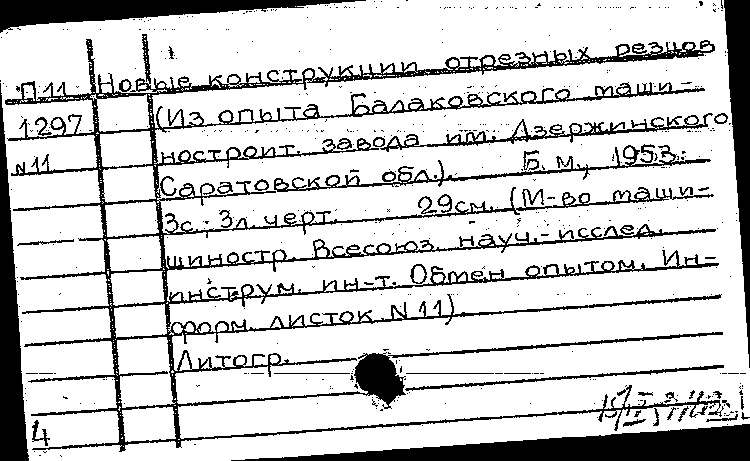 П11 Новые конструкции отрезных резцов
1297 (Из опыта Балаковского маши-
N11 ностроит. завода им. Дзержинского
Саратовской обл.). Б.м., 1953.
3с.; 3л. черт. 29см. (М-во маши-
шиностр. Всесоюз. науч.-исслед.
инструм. ин-т. Обмен опытом. Ин-
форм. листок N11).
Литогр.
4